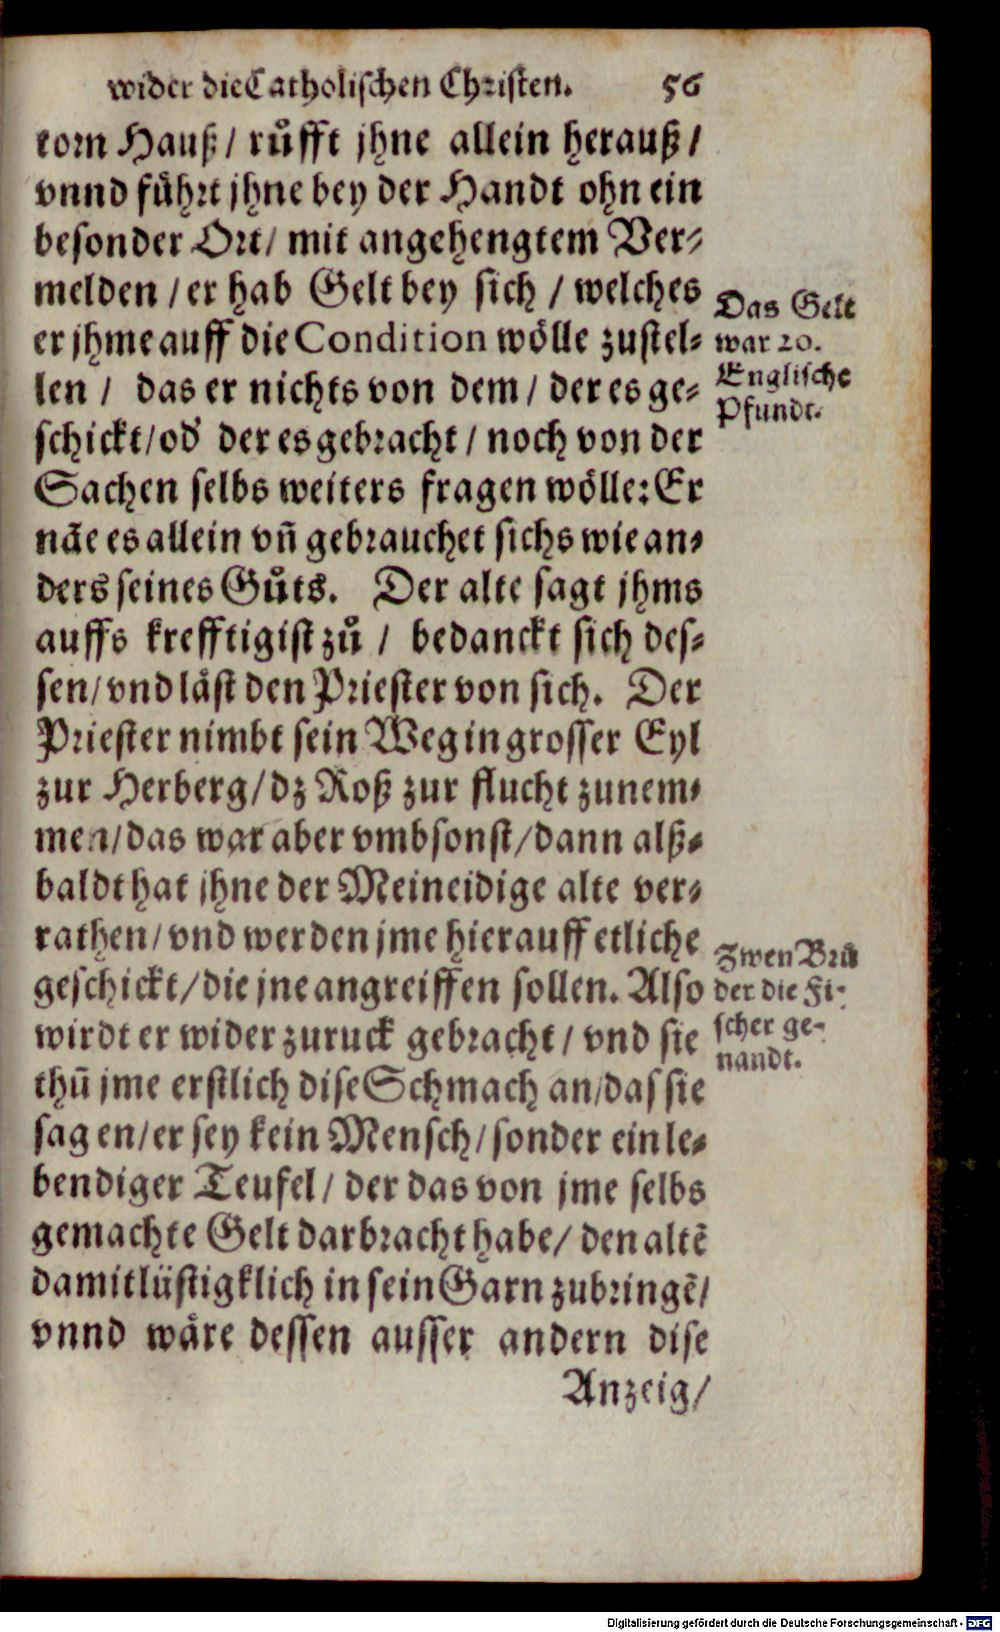 wider die Catholischen Christen. 56
torn Hauß / růfft jhne allein herauß /
vnnd führt jhne bey der Handt ohn ein
besonder Ort / mit angehengtem Ver-
melden / er hab Gelt bey sich / welches
er jhme auff die Condition wölle zustel-
len / das er nichts von dem / der es ge-
schickt / od' der es gebracht / noch von der
Sachen selbs weiters fragen wölle: Er
näe es allein vñ gebrauchet sichs wie an-
ders seines Gůts. Der alte sagt jhms
auffs krefftigist zů / bedanckt sich des-
sen / vnd läst den Priester von sich. Der
Priester nimbt sein Weg in grosser Eyl
zur Herberg / dz Roß zur flucht zunem-
men / das war aber vmbsonst / dann alß-
baldt hat jhne der Meineidige alte ver-
rathen / vnd werden jme hierauff etliche
geschickt / die jne angreiffen sollen. Also
wirdt er wider zuruck gebracht / vnd sie
thů jme erstlich dise Schmach an / das sie
sagen / er sey kein Mensch / sonder ein le-
bendiger Teufel / der das von jme selbs
gemachte Gelt darbracht habe / den altẽ
damit lüstigklich in sein Garn zubringẽ /
vnnd wäre dessen ausser andern dise
Anzeig /
Das Gelt
war 20.
Englische
Pfundt.
Zwen Brů
der die Fi-
scher ge-
nandt.
Digitalisierung gefördert durch die Deutsche Forschungsgemeinschaft - DFG